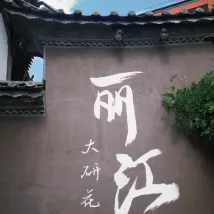 丽江
大研花